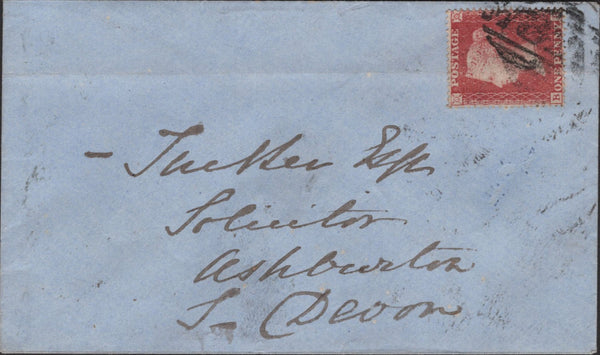 POSTAGE
ONE PENNY
– Tucker Esqr
Solicitor
Ashburton
S– Devon